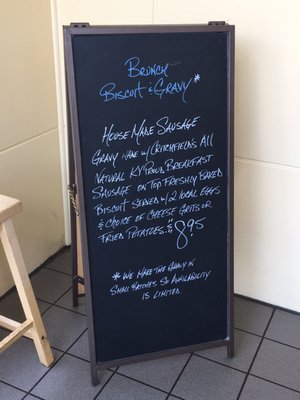 BRUNCH
BISCUIT & GRAVY*
HOUSE MADE SAUSAGE
GRAVY MADE W/ CRITCHFIELD'S ALL
NATURAL KY PROUD BREAKFAST
SAUSAGE ON TOP FRESHLY BAKED
BISCUIT SERVED W/ 2 LOCAL EGGS
& CHOICE OF CHEESE GRITS OR
FRIED POTATOES. 8.95
*WE MAKE THE GRAVY IN
SMALL BATCHES SO AVAILABILITY
IS LIMITED.